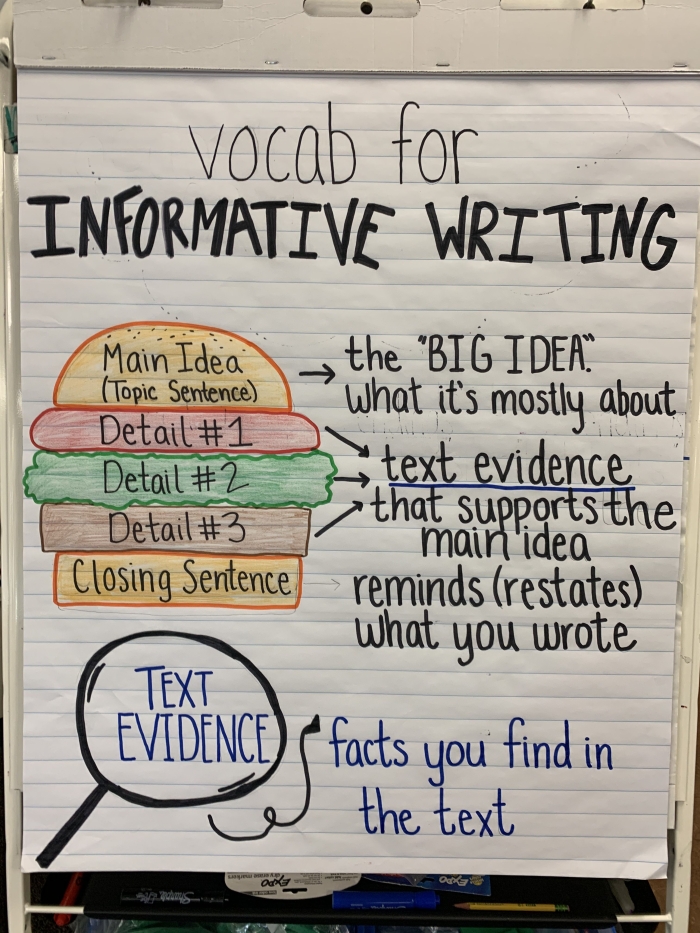 vocab for
INFORMATIVE WRITING
Main Idea
(Topic Sentence)
the "BIG IDEA".
what it's mostly about
Detail #1
Detail #2
Detail #3
text evidence
that supports the
main idea
Closing Sentence
reminds (restates)
what you wrote
TEXT
EVIDENCE
facts you find in
the text
EXPO
Sharpie